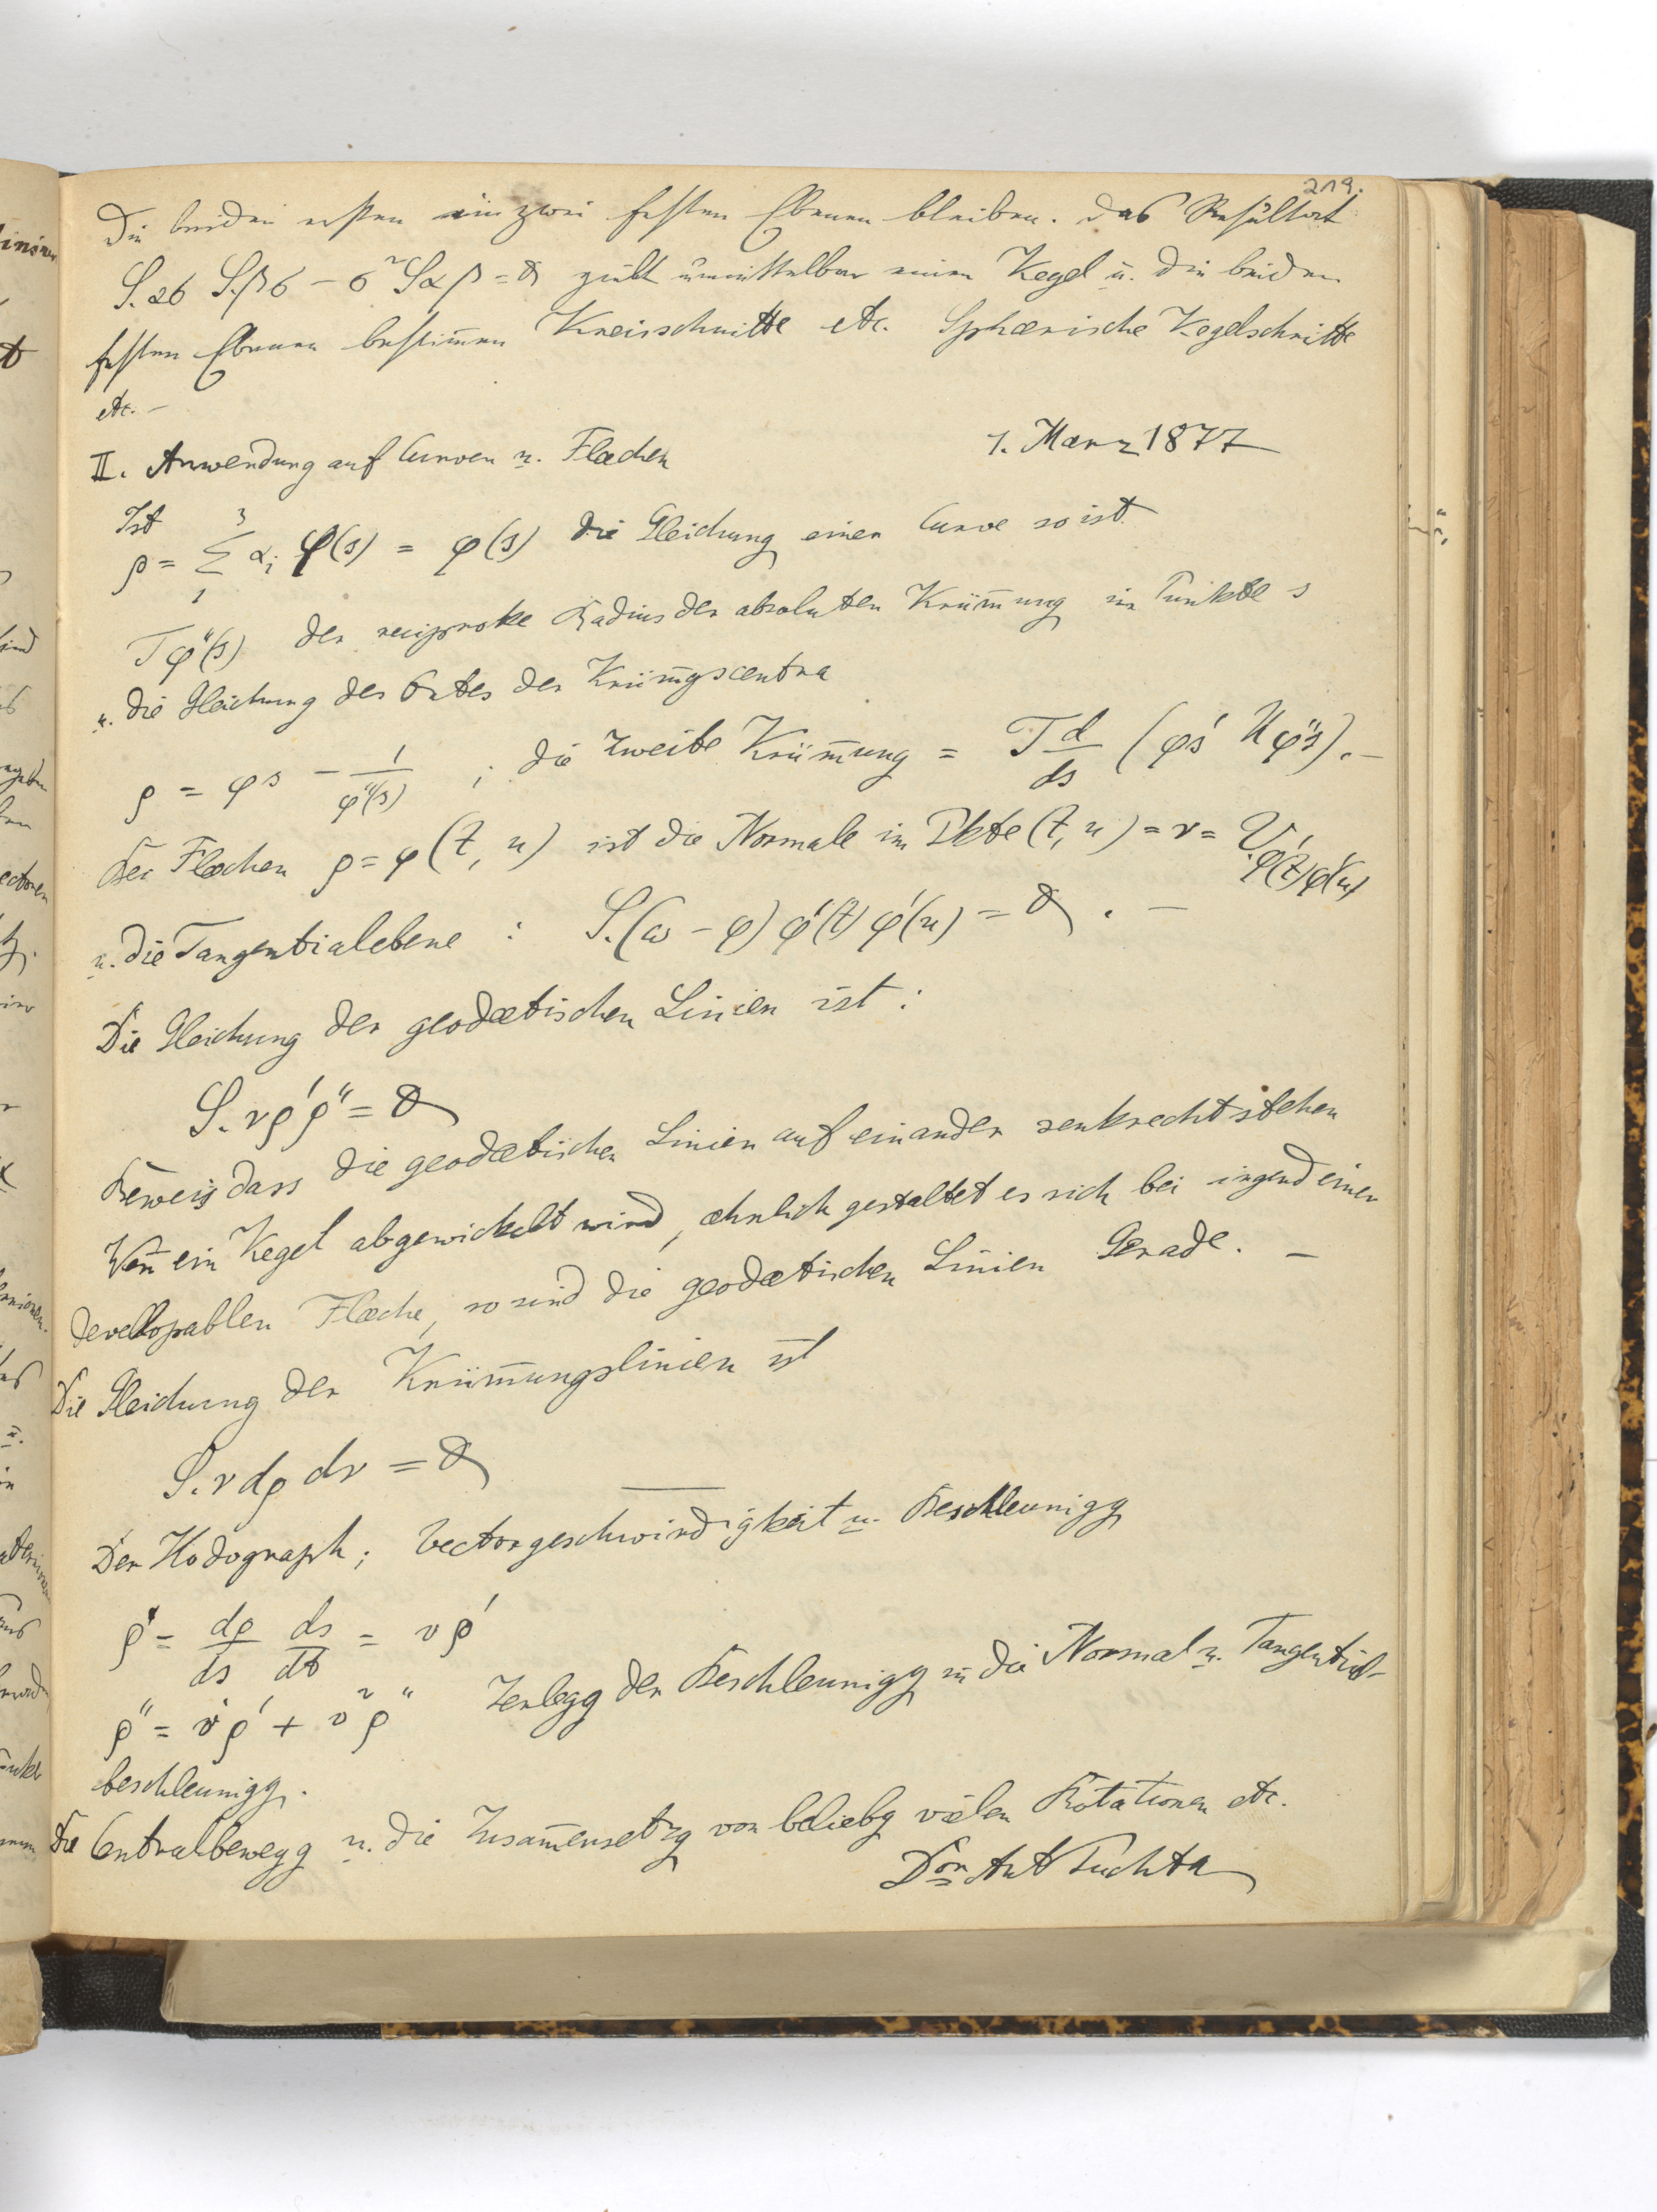 219.
Die beiden ersten in zwei festen Ebenen bleiben. Das Resultat
S.ασ S.βσ − σ²Sαβ = 0 giebt unmittelbar einen Kegel u. die beiden
festen Ebenen bestim̄en Kreisschnitte etc. Sphærische Kegelschnitte
etc. –
II. Anwendung auf Curven u. Flæchen 1. Mærz 1877
Ist
ρ = Σ₁³ αᵢ φ(s) = φ(s) die Gleichung einer Curve so ist
Tφ''(s) der reciproke Radius der absoluten Krüm̄ung im Punkte s
u. die Gleichung des Ortes der Krüm̄gscentra
ρ = φs − 1/φ''(s) ; die zweite Krüm̄ung = T d/ds (φ's Uφ''s). –
Bei Flæchen ρ = φ(t, u) ist die Normale im Pkte (t, u) = ν = V.φ'(t)φ'(u)
u. die Tangentialebene : S.(ω − φ) φ'(t) φ'(u) = 0 . –
Die Gleichung der geodætischen Linien ist :
S.νρ'ρ'' = 0
Beweis dass die geodætischen Linien auf einander senkrecht stehen
Wen̄ ein Kegel abgewickelt wird, æhnlich gestaltet es sich bei irgend einer
developpablen Flæche, so sind die geodætischen Linien Gerade. –
Die Gleichung der Krüm̄ungslinien ist
S.ν dρ dν = 0
Der Hodograph; Vectorgeschwindigkeit u. Beschleunigg
ρ̇ = dρ/ds ds/dt = vρ'
ρ̈ = v̇ρ' + v²ρ'' Zerlegg der Beschleunigg in die Normal u. Tangential-
beschleunigg.
Die Centralbewegg u. die Zusam̄ensetzg von beliebg vielen Rotationen etc.
Dor Ant Puchta